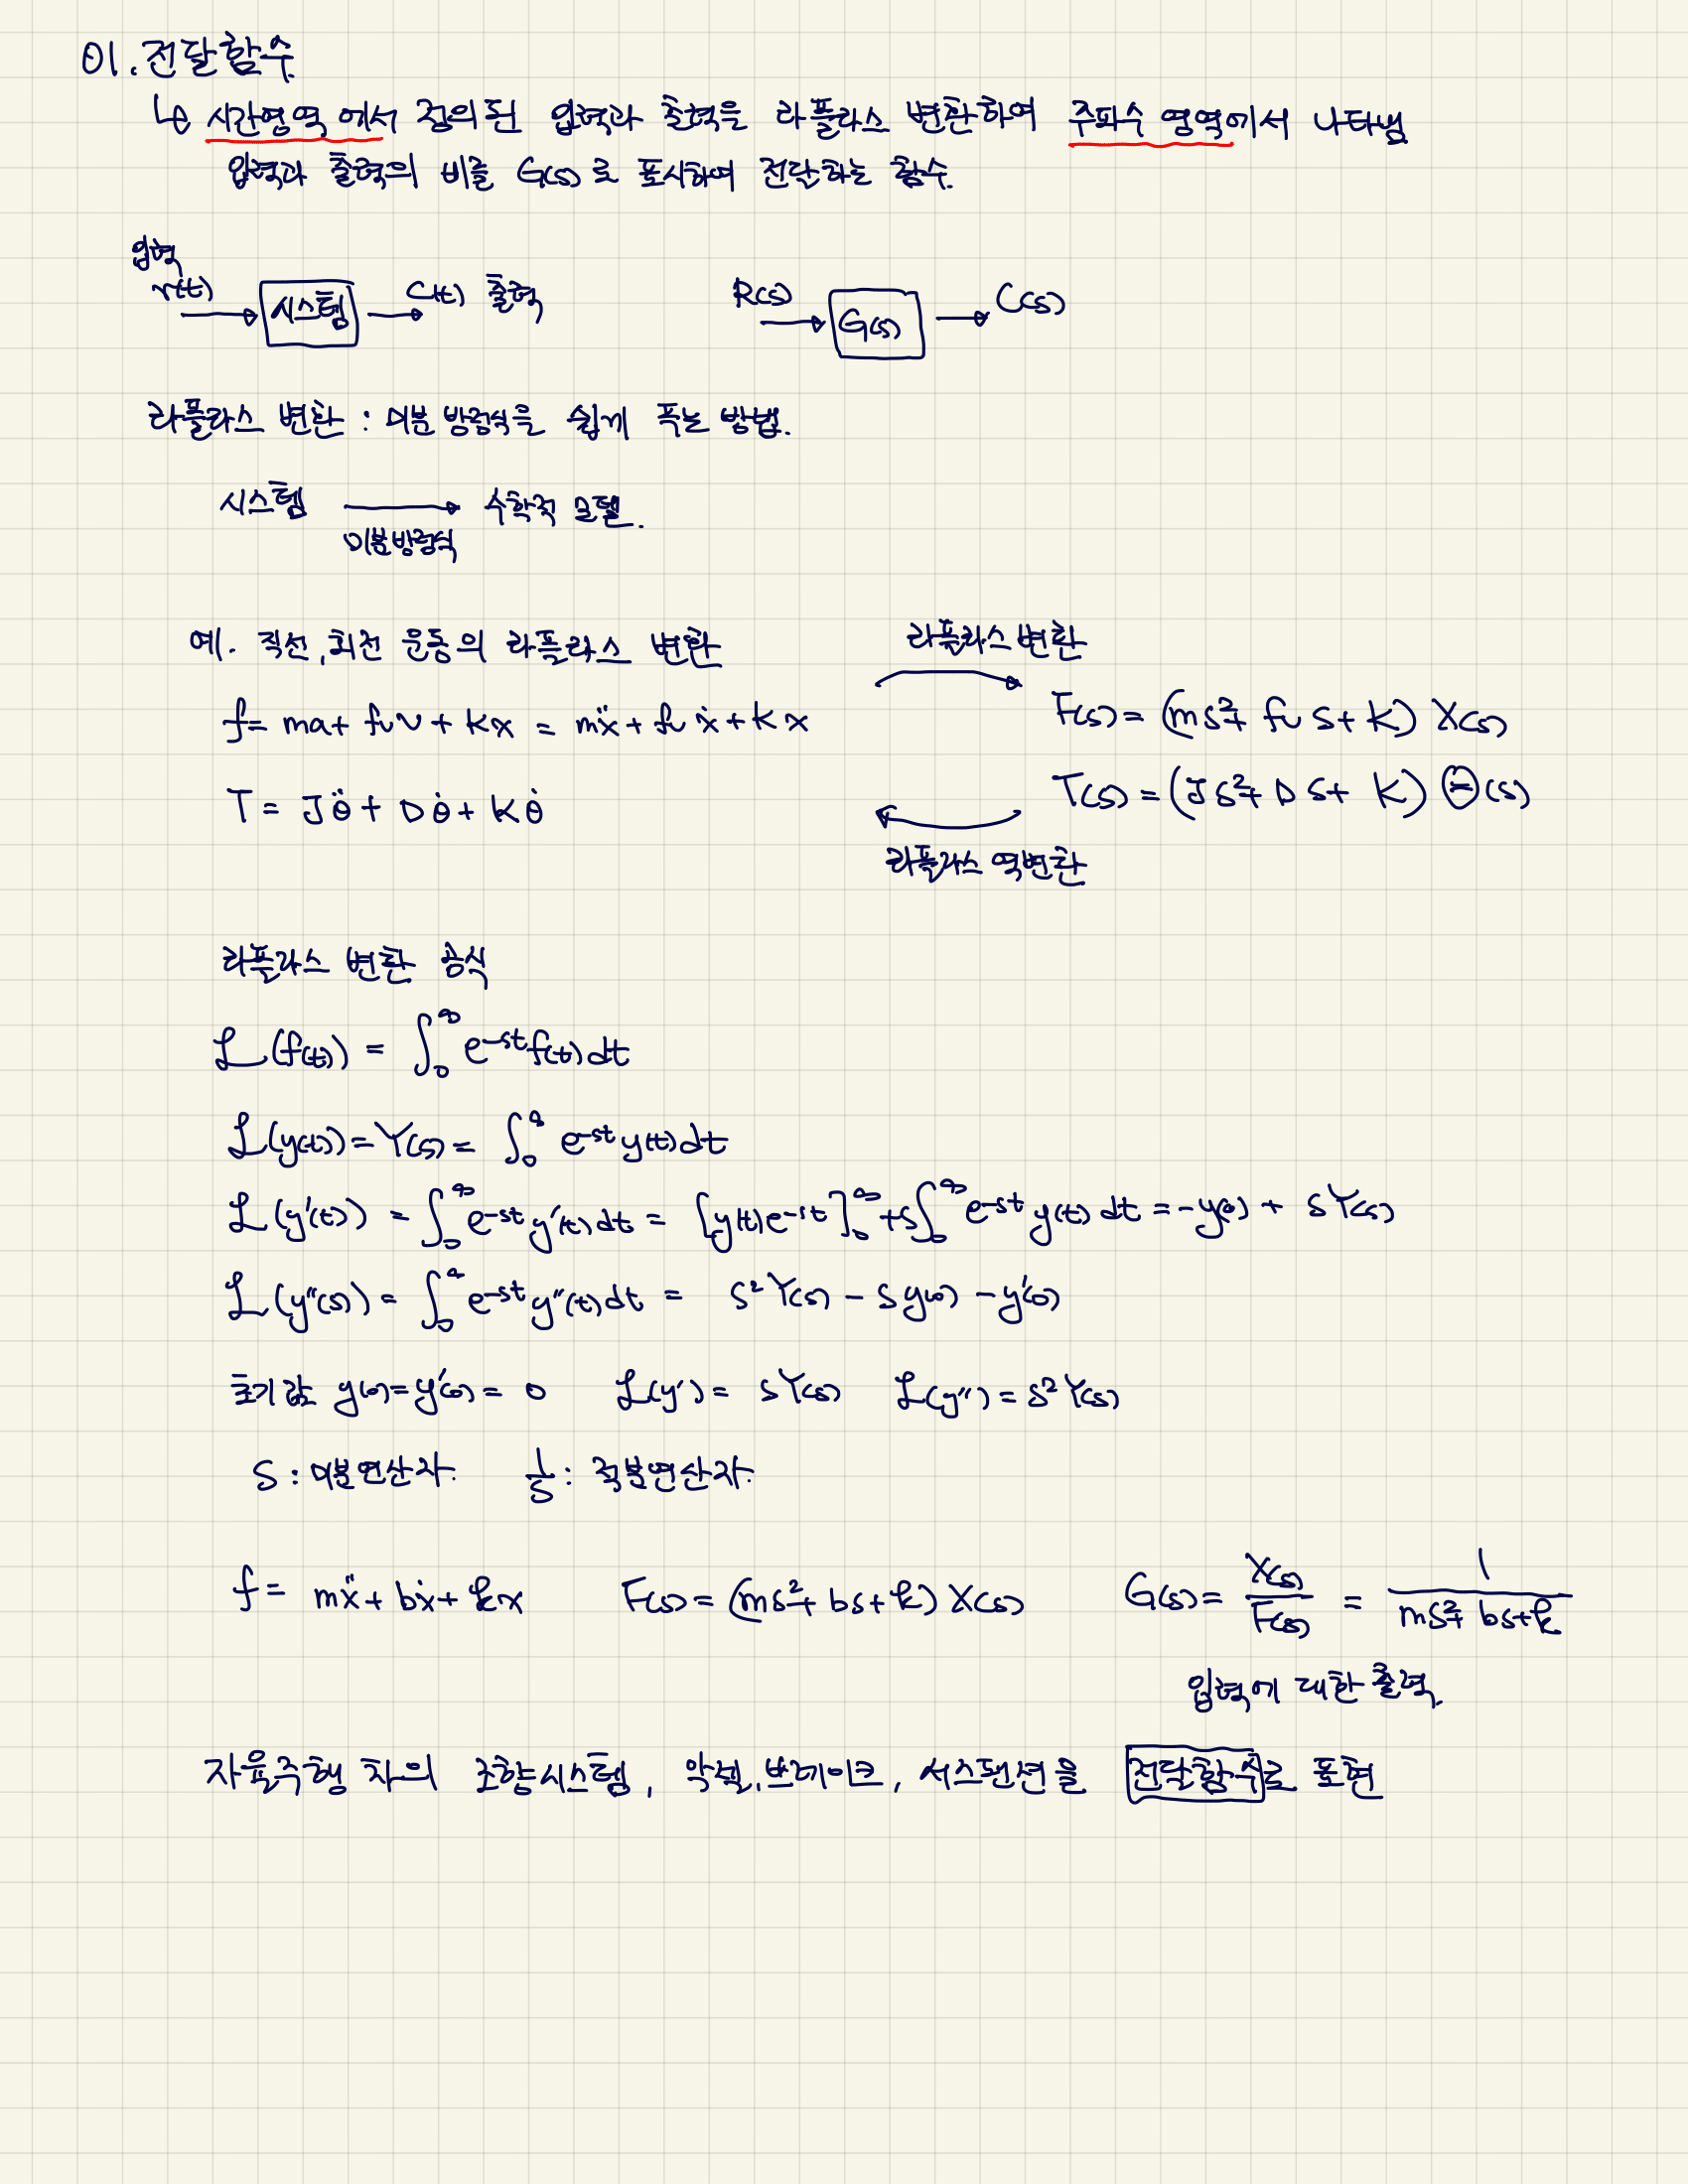 01. 전달함수
↳ 시간영역에서 정의된 입력과 출력을 라플라스 변환하여 주파수 영역에서 나타냄
입력과 출력의 비를 G(s)로 표시하여 전달하는 함수.
입력
r(t) → 시스템 → C(t) 출력 R(s) → G(s) → C(s)
라플라스 변환 : 미분 방정식을 쉽게 푸는 방법.
시스템 → 수학적 모델.
미분방정식
예. 직선, 회전 운동의 라플라스 변환 라플라스 변환
f = ma + fv v + Kx = mẍ + fv ẋ + Kx F(s) = (ms² + fv s + K) X(s)
T = Jθ̈ + Dθ̇ + Kθ̇ T(s) = (Js² + Ds + K) Θ(s)
라플라스 역변환
라플라스 변환 공식
ℒ(f(t)) = ∫₀^∞ e^-st f(t) dt
ℒ(y(t)) = Y(s) = ∫₀^∞ e^-st y(t) dt
ℒ(y'(t)) = ∫₀^∞ e^-st y'(t) dt = [y(t)e^-st]₀^∞ + s∫₀^∞ e^-st y(t) dt = -y(0) + sY(s)
ℒ(y''(s)) = ∫₀^∞ e^-st y''(t) dt = s²Y(s) - sy(0) - y'(0)
초기값 y(0) = y'(0) = 0 ℒ(y') = sY(s) ℒ(y'') = s²Y(s)
s : 미분연산자. 1/s : 적분연산자.
f = mẍ + bẋ + kx F(s) = (ms² + bs + k) X(s) G(s) = X(s)/F(s) = 1/(ms² + bs + k)
입력에 대한 출력.
자율주행 차의 조향시스템, 악셀, 브레이크, 서스펜션을 전달함수로 표현